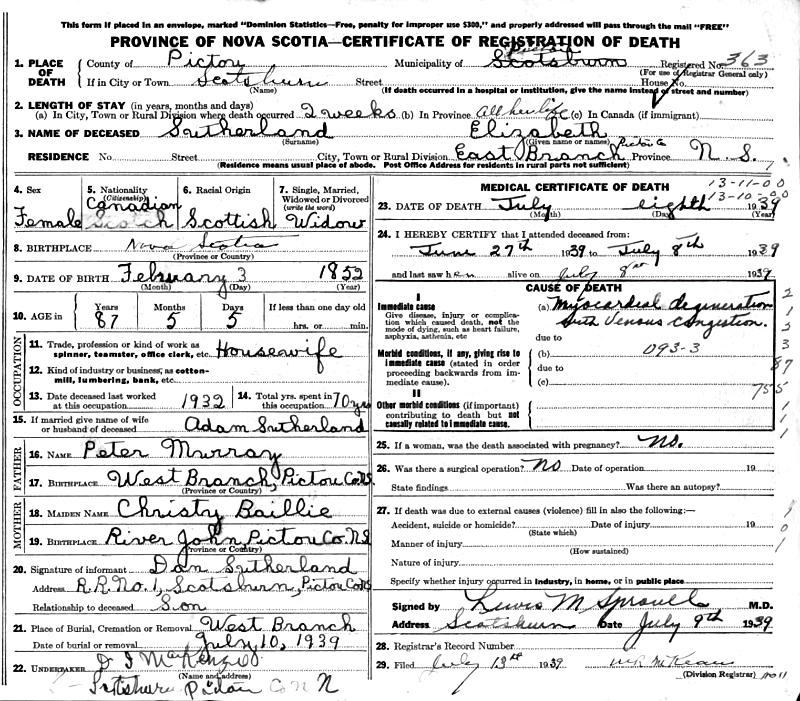 This form if placed in an envelope, marked "Dominion Statistics—Free, penalty for improper use $300," and properly addressed will pass through the mail "FREE"
PROVINCE OF NOVA SCOTIA—CERTIFICATE OF REGISTRATION OF DEATH
1. PLACE OF DEATH County of Pictou Municipality of Pictou Scotsburn Registered No. 363
(For use of Registrar General only)
If in City or Town Scotsburn Street House No.
(Name) (If death occurred in a hospital or institution, give the name instead of street and number)
2. LENGTH OF STAY (in years, months and days)
(a) In City, Town or Rural Division where death occurred 2 weeks (b) In Province All her life (c) In Canada (if immigrant)
3. NAME OF DECEASED Sutherland Elizabeth
(Surname) (Given name or names)
RESIDENCE No. Street City, Town or Rural Division East Branch Pictou Co Province N. S.
(Residence means usual place of abode. Post Office Address for residents in rural parts not sufficient)
4. Sex Female
5. Nationality (Citizenship) Canadian Scotch
6. Racial Origin Scottish
7. Single, Married, Widowed or Divorced (write the word) Widow
8. BIRTHPLACE Nova Scotia
(Province or Country)
9. DATE OF BIRTH February 3 1852
(Month) (Day) (Year)
10. AGE in Years 87 Months 5 Days 5 If less than one day old hrs. or min.
OCCUPATION
11. Trade, profession or kind of work as spinner, teamster, office clerk, etc. Housewife
12. Kind of industry or business, as cotton-mill, lumbering, bank, etc.
13. Date deceased last worked at this occupation 1932
14. Total yrs. spent in this occupation 70 yrs
15. If married give name of wife or husband of deceased Adam Sutherland
FATHER
16. NAME Peter Murray
17. BIRTHPLACE West Branch, Pictou Co. N.S
(Province or Country)
MOTHER
18. MAIDEN NAME Christy Baillie
19. BIRTHPLACE River John, Pictou Co. N.S
(Province or Country)
20. Signature of informant Dan Sutherland
Address R.R. No. 1, Scotsburn, Pictou Co NS
Relationship to deceased Son
21. Place of Burial, Cremation or Removal West Branch
Date of burial or removal July 10, 1939
22. UNDERTAKER D J MacKenzie
(Name and address)
Scotsburn Pictou Co N
MEDICAL CERTIFICATE OF DEATH
13-11-00
13-10-00
23. DATE OF DEATH July eighth 1939
(Month) (Day) (Year)
24. I HEREBY CERTIFY that I attended deceased from:
June 27th 1939 to July 8th 1939
and last saw her alive on July 8th 1939
CAUSE OF DEATH
I
Immediate cause
Give disease, injury or complication which caused death, not the mode of dying, such as heart failure, asphyxia, asthenia, etc
(a) Myocardial degeneration
with Venous congestion.
due to
Morbid conditions, if any, giving rise to immediate cause (stated in order proceeding backwards from immediate cause).
(b) 093-3
due to
(c)
755
II
Other morbid conditions (if important) contributing to death but not causally related to immediate cause.
25. If a woman, was the death associated with pregnancy? No.
26. Was there a surgical operation? No Date of operation 19
State findings Was there an autopsy?
27. If death was due to external causes (violence) fill in also the following:—
Accident, suicide or homicide? Date of injury 19
(State which)
Manner of injury
(How sustained)
Nature of injury
Specify whether injury occurred in industry, in home, or in public place
Signed by Lewis M Sproull M.D.
Address Scotsburn Date July 9th 1939
28. Registrar's Record Number
29. Filed July 13th 1939 McKean
(Division Registrar)